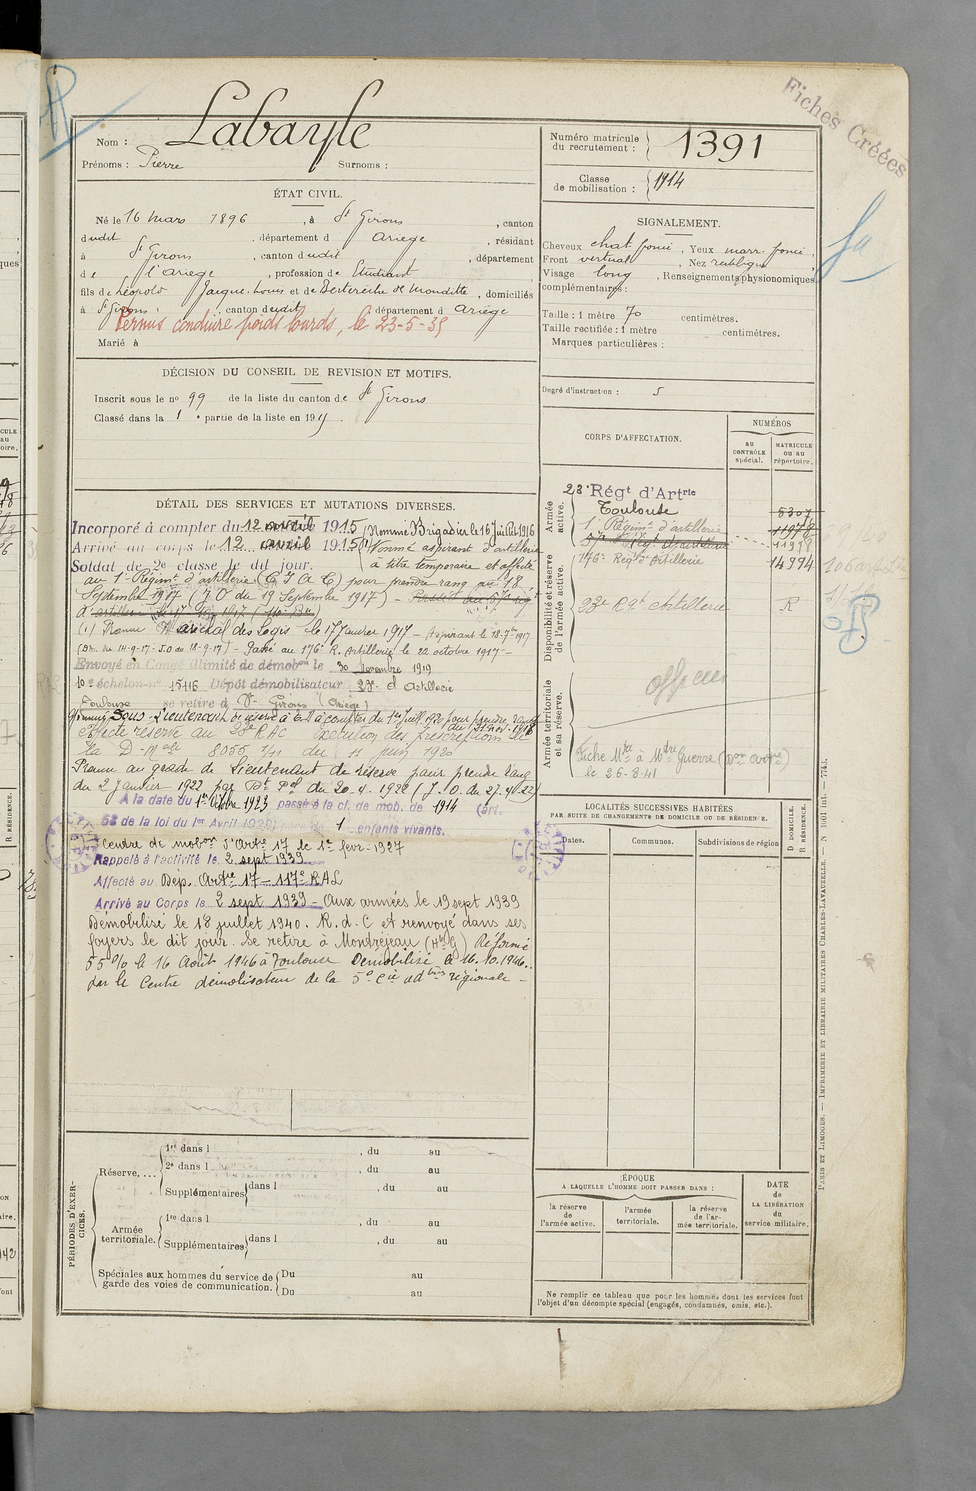 Fiches Créées
Nom : Labayle
Prénoms : Pierre Surnoms :
Numéro matricule du recrutement : 1391
Classe de mobilisation : 1914
ÉTAT CIVIL.
Né le 16 mars 1896, à St Girons, canton
dudit, département d Ariège, résidant
à St Girons, canton dudit, département
de l'Ariège, profession de Etudiant
fils de Léopold Jacques Louis et de Berterèche de Menditte, domiciliés
à St Girons, canton dudit, département d Ariège
Permis conduire poids lourds, le 23-5-35
Marié à
SIGNALEMENT.
Cheveux chat. foncé, Yeux marr. foncé,
Front vertical, Nez rectiligne
Visage long, Renseignements physionomiques
complémentaires :
Taille : 1 mètre 70 centimètres.
Taille rectifiée : 1 mètre centimètres.
Marques particulières :
Degré d'instruction : 5
DÉCISION DU CONSEIL DE REVISION ET MOTIFS.
Inscrit sous le no 99 de la liste du canton de St Girons
Classé dans la 1e partie de la liste en 191
CORPS D'AFFECTATION.
NUMÉROS
AU CONTRÔLE spécial.
MATRICULE OU AU répertoire.
Armée active.
23e Régt d'Artrie
Toulouse 5307
1er Régimt d'artillerie 11978
11978
176e Régt d'Artillerie 14974
Disponibilité et réserve de l'armée active.
23e Rgt Artillerie R
officier
Armée territoriale et sa réserve.
Fiche Mle à Mtre Guerre
le 26.8.41
DÉTAIL DES SERVICES ET MUTATIONS DIVERSES.
Incorporé à compter du 12 avril 1915 (Nommé Brigadier le 16 Juillet 1916
Arrivé au corps le 12 avril 1915 (1) Nommé aspirant d'artillerie
Soldat de 2e classe le dit jour. à titre temporaire et affecté
au 1er Régimt d'artillerie (C I A C) pour prendre rang au 18
Septembre 1917 (J O du 19 Septembre 1917) - Passé au 57e régt
d'artillerie
(1) Promu Maréchal des Logis le 17 Janvier 1917 - Aspirant le 18-7bre 1917
(Dn. du 14-9-17 - J.O du 18-9-17) - Passé au 176e R. Artillerie le 22 octobre 1917 -
Envoyé en Congé illimité de démobon le 30 1919
10e échelon no 15416 Dépôt démobilisateur 23e d'Artillerie
Toulouse se retire à St Girons (Ariège)
Promu Sous-Lieutenant de réserve à T.T à compter du 1er Juill. 1920 pour prendre rang
Affecté réserve au 23e RAC Exécution des prescriptions de
la D. Mle 8055 7/11 du 11 juin 1920
Promu au grade de Lieutenant de réserve pour prendre rang
du 2 janvier 1922 par Dt Pel du 20-4-1922 (J.O. du 27-4-22)
A la date du 1er Octobre 1923 passé à la cl. de mob. de 1914 (art.
58 de la loi du 1er Avril 1923) père de 1 enfants vivants.
Centre de mobon d'Artie 17 le 1er fevr-1937
Rappelé à l'activité le 2 sept 1939
Affecté au Dép. Artie 17 - 117e RAL
Arrivé au Corps le 2 sept 1939 - Aux armées le 19 sept 1939
Démobilisé le 18 juillet 1940. R.d.C et renvoyé dans ses
foyers le dit jour. Se retire à Montréjeau (Hte G) Réformé
55% le 16 Août 1946 à Toulouse Démobilisé le 16.10.1946.
par le Centre démobilisateur de la 5e Cie adtive régionale -
LOCALITÉS SUCCESSIVES HABITÉES
PAR SUITE DE CHANGEMENTS DE DOMICILE OU DE RÉSIDENCE.
Dates.
Communes.
Subdivisions de région
D. DOMICILE. R. RÉSIDENCE.
PÉRIODES D'EXERCICES.
Réserve....
1re dans l , du au
2e dans l , du au
Supplémentaires dans l , du au
Armée territoriale.
1re dans l , du au
Supplémentaires dans l , du au
Spéciales aux hommes du service de garde des voies de communication.
Du au
Du au
ÉPOQUE
A LAQUELLE L'HOMME DOIT PASSER DANS :
la réserve de l'armée active.
l'armée territoriale.
la réserve de l'armée territoriale.
DATE DE LA LIBÉRATION du service militaire.
Ne remplir ce tableau que pour les hommes dont les services font
l'objet d'un décompte spécial (engagés, condamnés, omis, etc.).
PARIS ET LIMOGES. — IMPRIMERIE ET LIBRAIRIE MILITAIRES CHARLES-LAVAUZELLE.